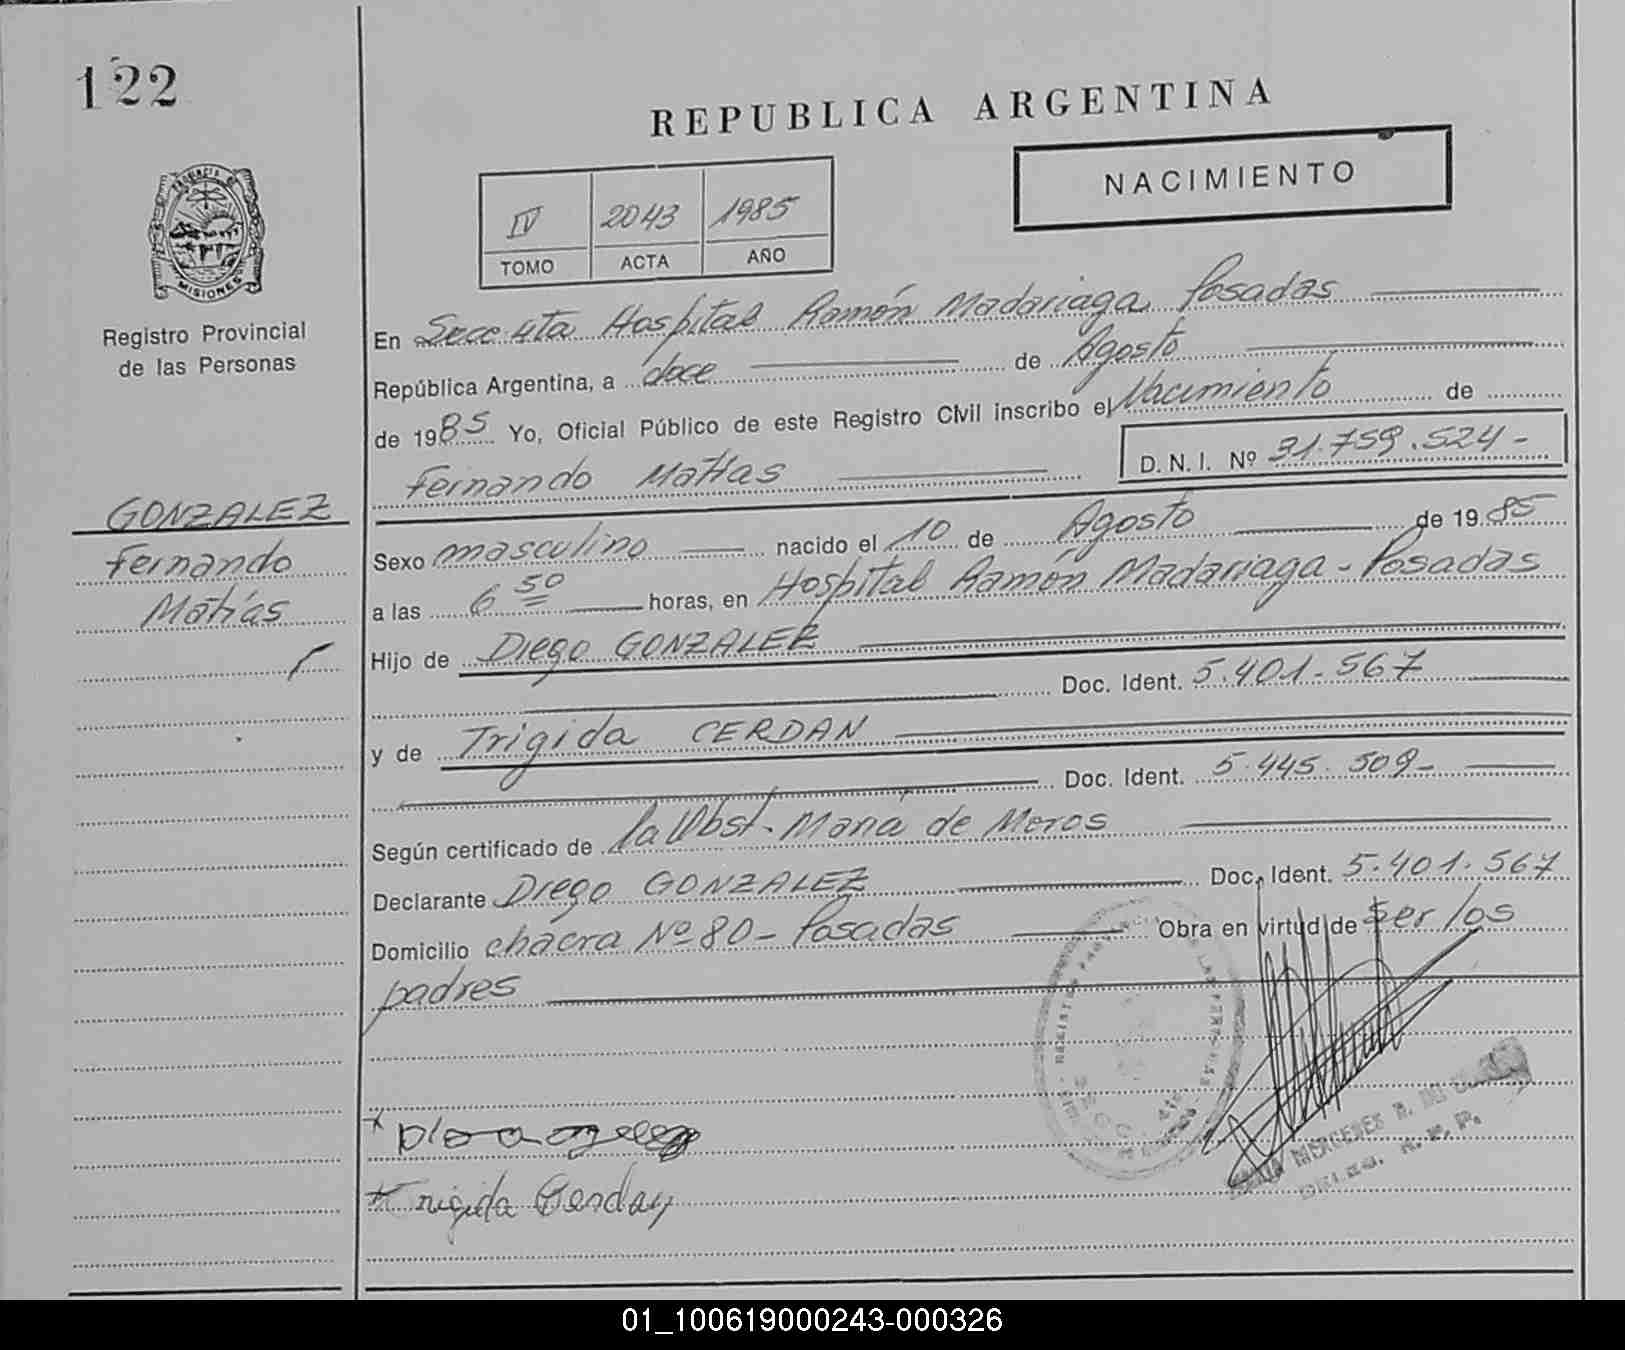 122
REPUBLICA ARGENTINA
NACIMIENTO
IV 2043 1985
TOMO ACTA AÑO
PROVINCIA DE
MISIONES
Registro Provincial
de las Personas
GONZALEZ
Fernando
Matías
En Secc 4ta Hospital Ramón Madariaga Posadas
República Argentina, a doce de Agosto
de 1985 Yo, Oficial Público de este Registro Civil inscribo el Nacimiento de
Fernando Matías D. N. I. Nº 31.759.524-
Sexo masculino nacido el 10 de Agosto de 1985
a las 6 50 horas, en Hospital Ramón Madariaga - Posadas
Hijo de Diego GONZALEZ
Doc. Ident. 5.401.567
y de Trigida CERDAN
Doc. Ident. 5.445.509-
Según certificado de la Obst. María de Meros
Declarante Diego GONZALEZ Doc. Ident. 5.401.567
Domicilio chacra Nº 80 - Posadas Obra en virtud de ser los
padres
MERCEDES
Trigida Cerdan
01_100619000243-000326